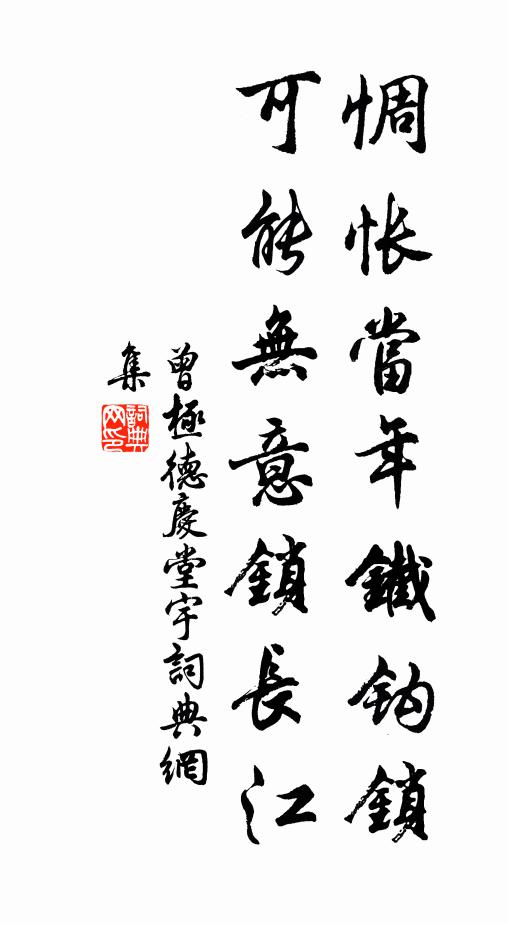 惆悵當年鐵鈎鎖
可能無意鎖長江
曾極德慶堂宇詞典網
集
詞典网印